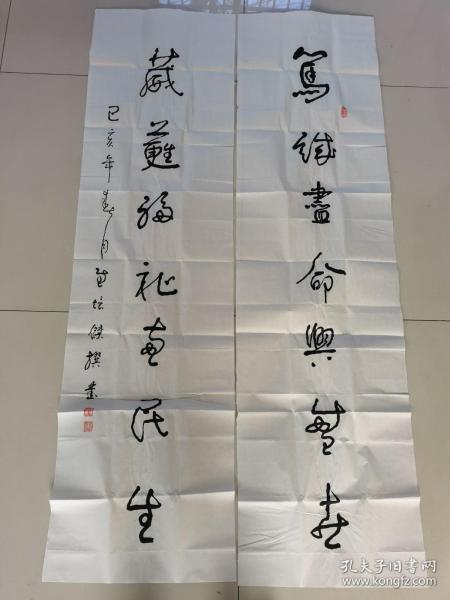 篤誠盡命興
葳蕤福祉惠民生
己亥年春月 培傑撰書
孔夫子旧书网
www.kongfz.com